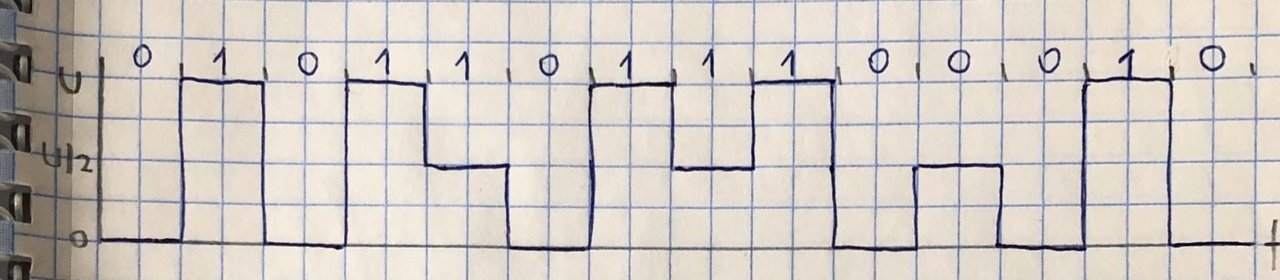 0 1 0 1 1 0 1 1 1 0 0 0 1 0
U
U/2
0 t